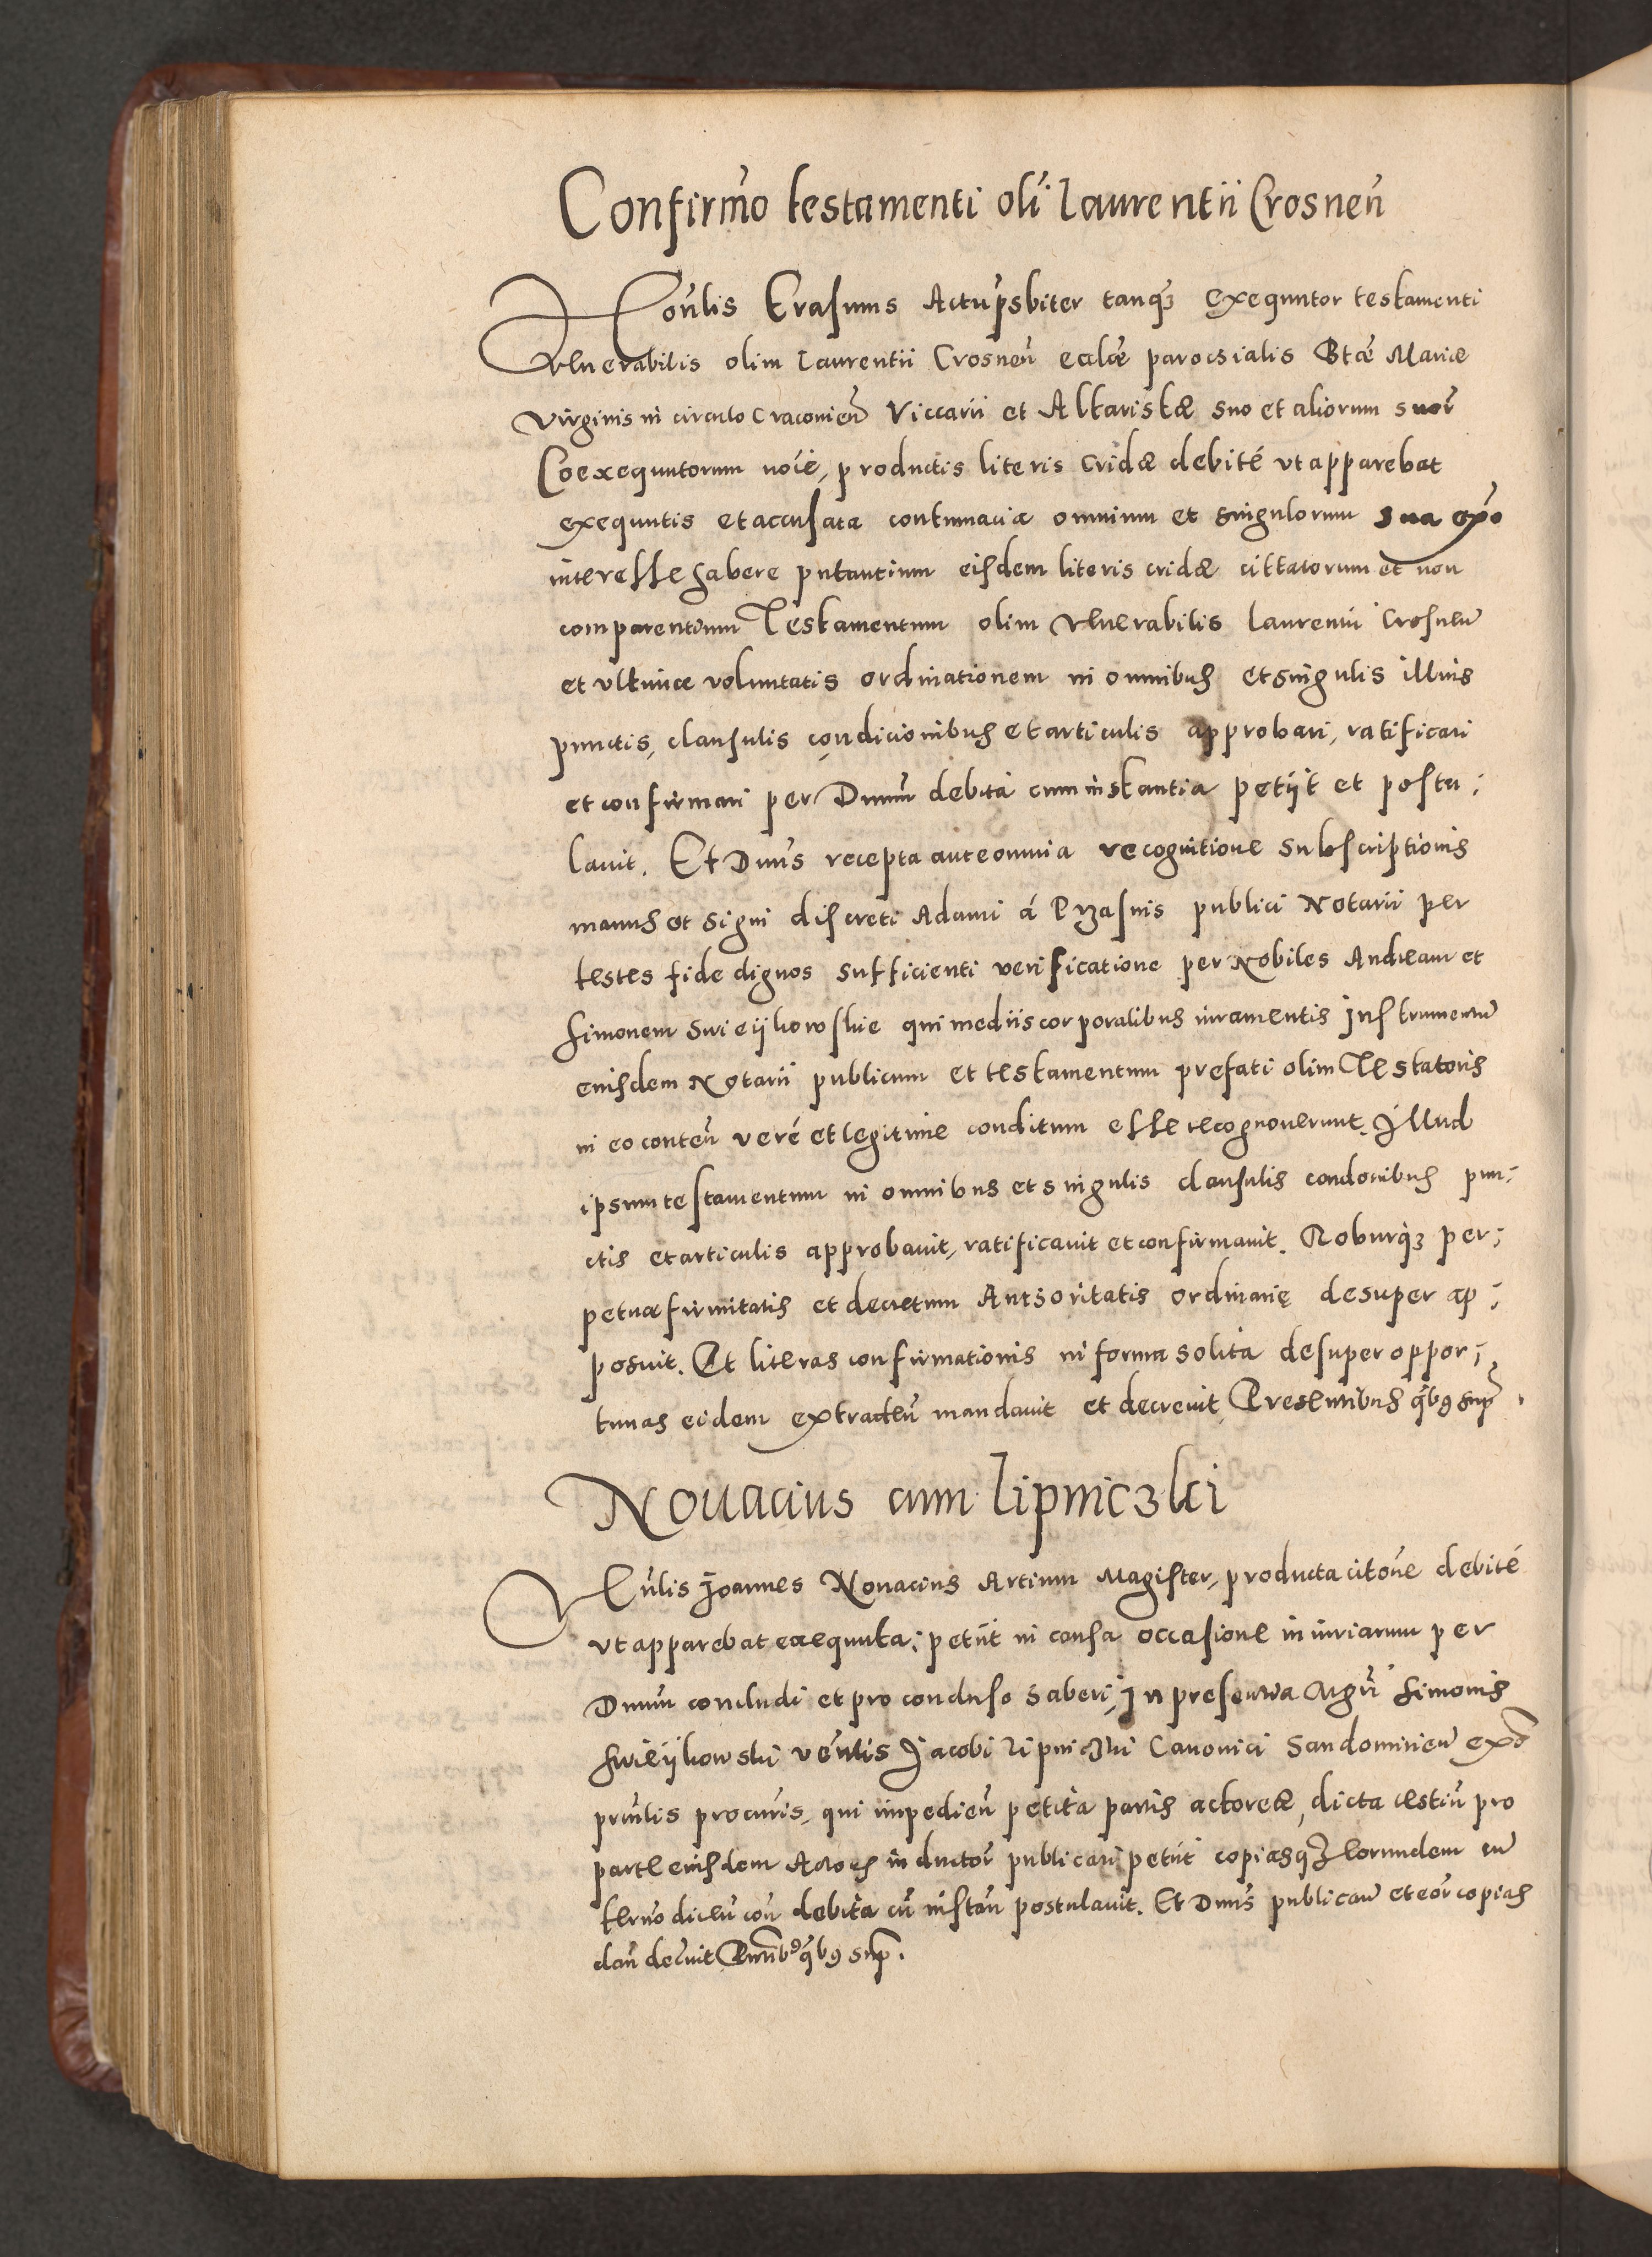 Confirm̃o testamenti oli͂ Laurentii Crosneñ
Honũlis Erasmus Actup̃sbiter tanq́ʒ exequutor testamenti
venerabilis olim Laurentii Crosneñ ecclæ̃ parochialis Btæ̃ Mariæ
Virginis in circulo Cracovieñ Viccarii et Altaristæ suo et aliorum suor̃
Coexequutorum noĩe, productis literis cridæ debité vt apparebat
exequutis et accusata contumacia omnium et singulorum sua exp̃o
interesse habere putantium eisdem literis cridæ cittatorum et non
comparentium Testamentum olim venerabilis Laurentii Crosneñ
et vltimæ voluntatis ordinationem in omnibus et singulis illius
punctis, clausulis condicionibus et articulis approbari, ratificari
et confirmari per Dnum̃ debita cum instantia petijt et postu;
lavit. Et Dnus̃ recepta ante omnia recognitione subscriptionis
manus et signi discreti Adami á Przasnis publici Notarii per
testes fide dignos sufficienti verificatione per Nobiles Andream et
Simonem Swieijkowskie qui mediis corporalibus iuramentis Instrumentũ
eiusdem Notarii publicum et testamentum prefati olim Testatoris
in eo conteñ veré et legitime conditum esse recognoverunt. Illud
ipsum testamentum in omnibus et singulis clausulis condonibus pun;
ctis et articulis approbavit, ratificavit et confirmavit. Roburq́ʒ per;
petuæ firmitatis et decretum Authoritatis ordinarię desuper ap;
posuit. Et literas confirmationis in forma solita desuper oppor;
tunas eidem extradeñ mandavit et decrevit, Presentibus q̃bɔ sup̃.
Novacius cum Lipniczki
Veñlis Joannes Novacius Artium Magister, producta citõne debité
vt apparebat exequuta; petiit in causa occasione iniuriarum per
Dnum̃ concludi et pro concluso haberi, In presentia Mgr̃i Simonis
Swieijkowski veñtlis Jacobi Lipniczki Canonici Sandomirieñ exp̃o
priñlis procur̃is, qui impedieñ petita partis actoreæ, dicta testiũ pro
parte eiusdem Actoris inductor̃ publicari petiit copiasq́ʒ eorundem in
termõ diceñ coñ debita cũ instañ postulavit. Et Dnus̃ publicavit et eor̃ copias
dañ decr̃uit P̃ntibɔ q̃bɔ sup̃.